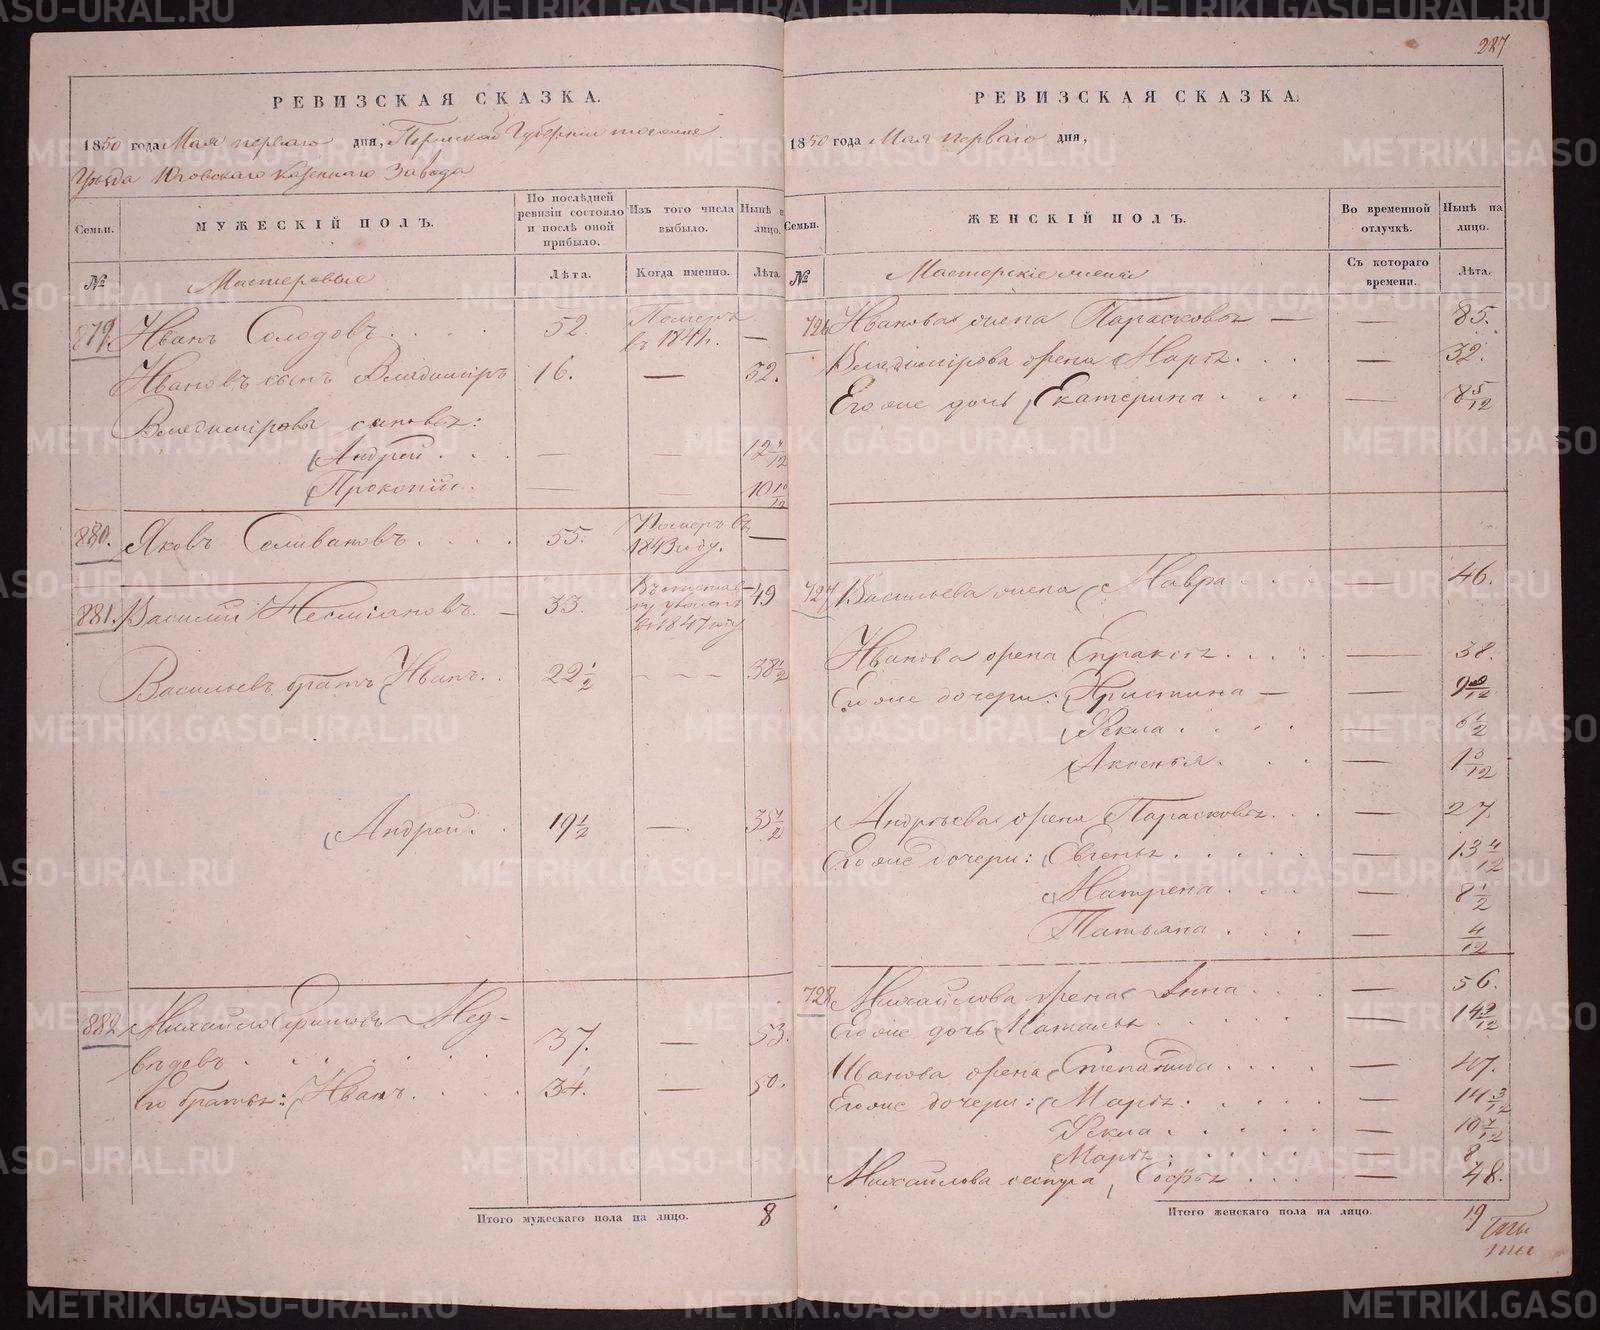 287
РЕВИЗСКАЯ СКАЗКА.
1850 года Мая перваго дня, Пермской Губернии тогоже
Уѣзда Юговскаго казеннаго Завода
Семьи.
МУЖЕСКІЙ ПОЛЪ.
По послѣдней ревизіи состояло и послѣ оной прибыло.
Изъ того числа выбыло.
Нынѣ на лицо.
№
Мастеровые
Лѣта.
Когда именно.
Лѣта.
879. Иванъ Солодовъ 52. Померъ въ 1844. —
Ивановъ сынъ Владимiръ 16. — 32.
Владимiровы сыновья:
Андрей — — 12 4/12
Прокопiй — — 10 10/12
880. Яковъ Селивановъ 55. Померъ въ 1843 году. —
881. Василiй 33. 1847 году 49
Васильевъ братъ Иванъ 22 1/2 — — — 38 1/2
Андрей 19 1/2 — 35 1/2
882. Михайло Мед-
вѣдевъ 37. — 53.
Его братья: Иванъ 34. — 50.
Итого мужескаго пола на лицо. 8
РЕВИЗСКАЯ СКАЗКА.
1850 года Мая перваго дня,
Семьи.
ЖЕНСКІЙ ПОЛЪ.
Во временной отлучкѣ.
Нынѣ на лицо.
№
Мастерскiе
Съ котораго времени.
Лѣта.
726 Иванова жена Парасковья — — 85.
Владимiрова жена Марья — 32.
Его же дочь Екатерина — 8 5/12
727 Васильева жена Мавра — 46.
Иванова жена Епраксья — 38.
Его же дочери: Христина — —
Ѳекла — 6 1/2
Аксенья — 1
Андреева жена Парасковья 27.
Его же дочери: Евгенья — 13 4/12
Матрена — 8 1/2
Татьяна — 4/12
728 Михайлова жена Анна — 56.
Его же дочь Наталья — 14
Иванова жена Степанида — 47.
Его же дочери: Марья — 14 3/12
Ѳекла — 10 7/12
Марья — 8
Михайлова сестра Софья — 48.
Итого женскаго пола на лицо. 19
METRIKI.GASO-URAL.RU